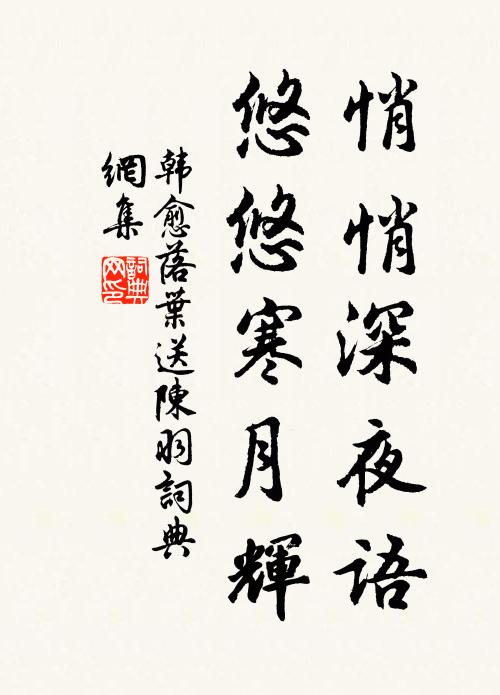 悄悄深夜语
悠悠寒月輝
韩愈落葉送陳羽詞典
網集
詞典
网印